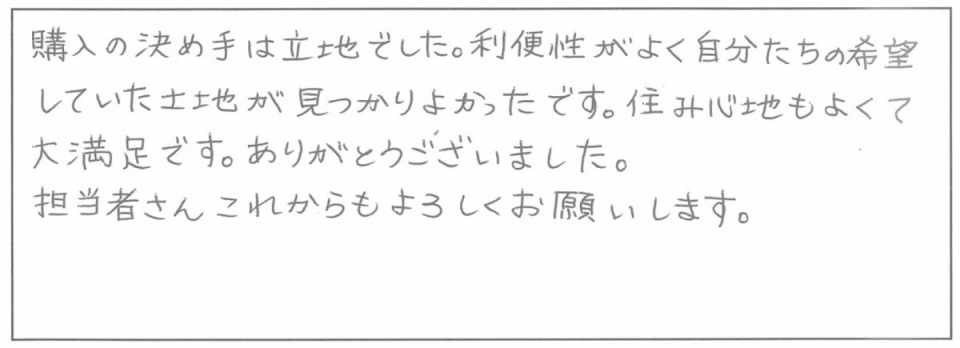 購入の決め手は立地でした。利便性がよく自分たちの希望
していた土地が見つかりよかったです。住み心地もよくて
大満足です。ありがとうございました。
担当者さんこれからもよろしくお願いします。